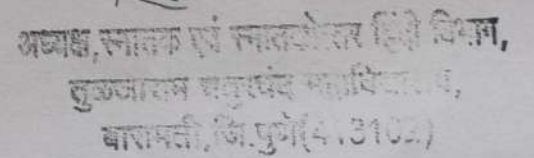 अध्यक्ष,स्नातक एवं स्नातकोत्तर हिंदी विभाग,
तुळजाराम चतुरचंद महाविद्यालय,
बारामती,जि.पुणे(413102)